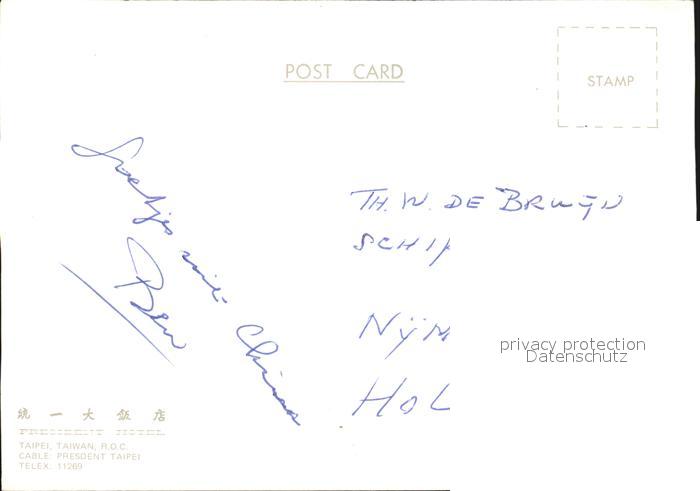 POST CARD
STAMP
Groetjes uit China
Ben
TH. W. DE BRUIJN
SCHI
NIJM
HOL
privacy protection
Datenschutz
統一大飯店
PRESIDENT HOTEL
TAIPEI, TAIWAN, R.O.C.
CABLE: PRESDENT TAIPEI
TELEX: 11269